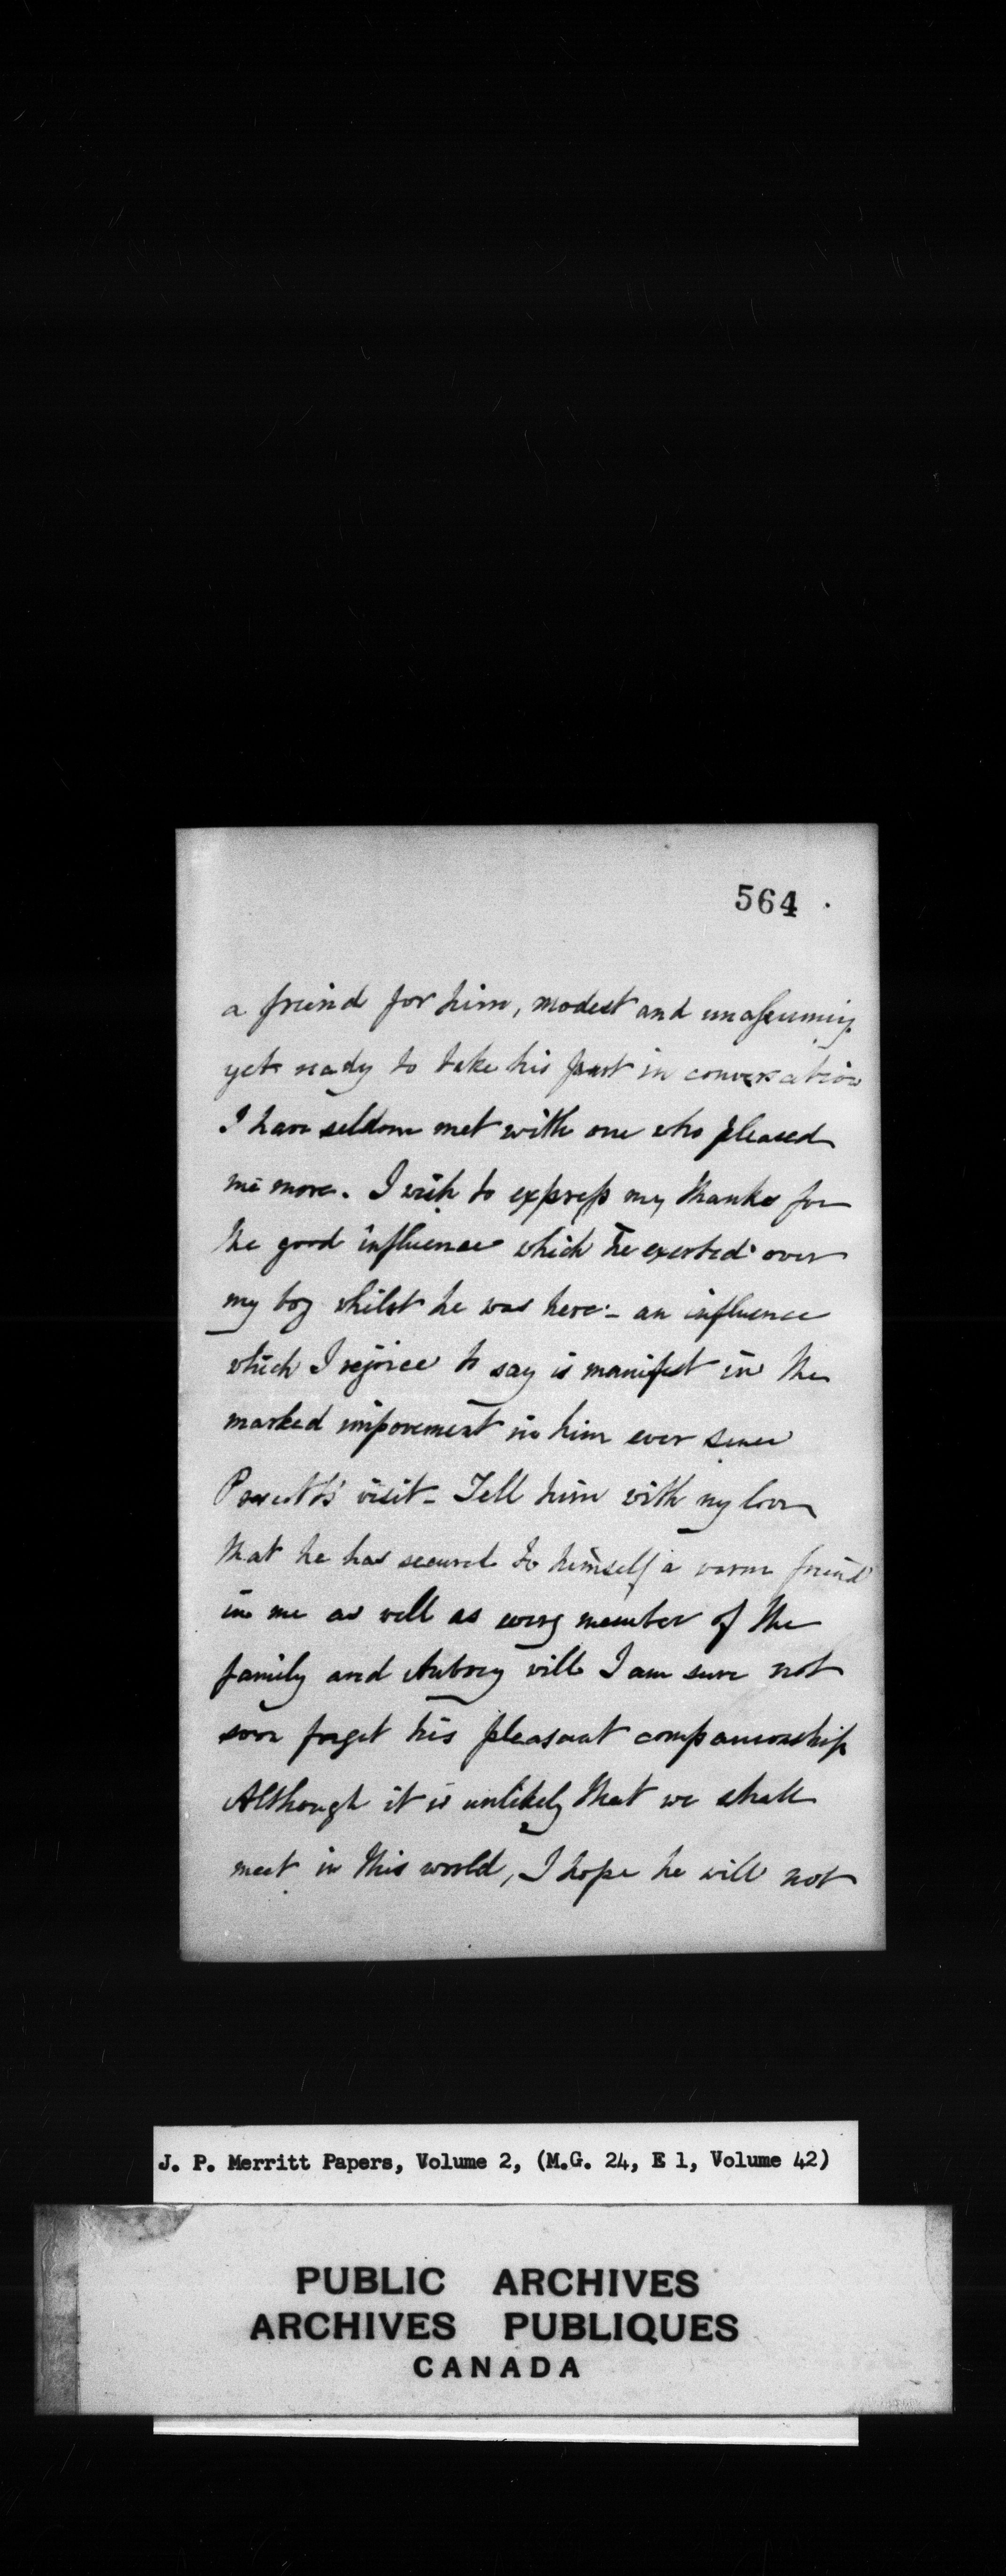 564
a friend for him, modest and unassuming
yet ready to take his part in conversation
I have seldom met with one who pleased
me more. I wish to express my thanks for
the good influence which he exerted over
my boy whilst he was here - an influence
which I rejoice to say is manifest in the
marked improvement in him ever since
visit - Tell him with my love
that he has secured to himself a warm friend
in me as well as every member of the
family and Aubrey will I am sure not
soon forget his pleasant companionship
Although it is unlikely that we shall
meet in this world, I hope he will not
J. P. Merritt Papers, Volume 2, (M.G. 24, E 1, Volume 42)
PUBLIC ARCHIVES
ARCHIVES PUBLIQUES
CANADA